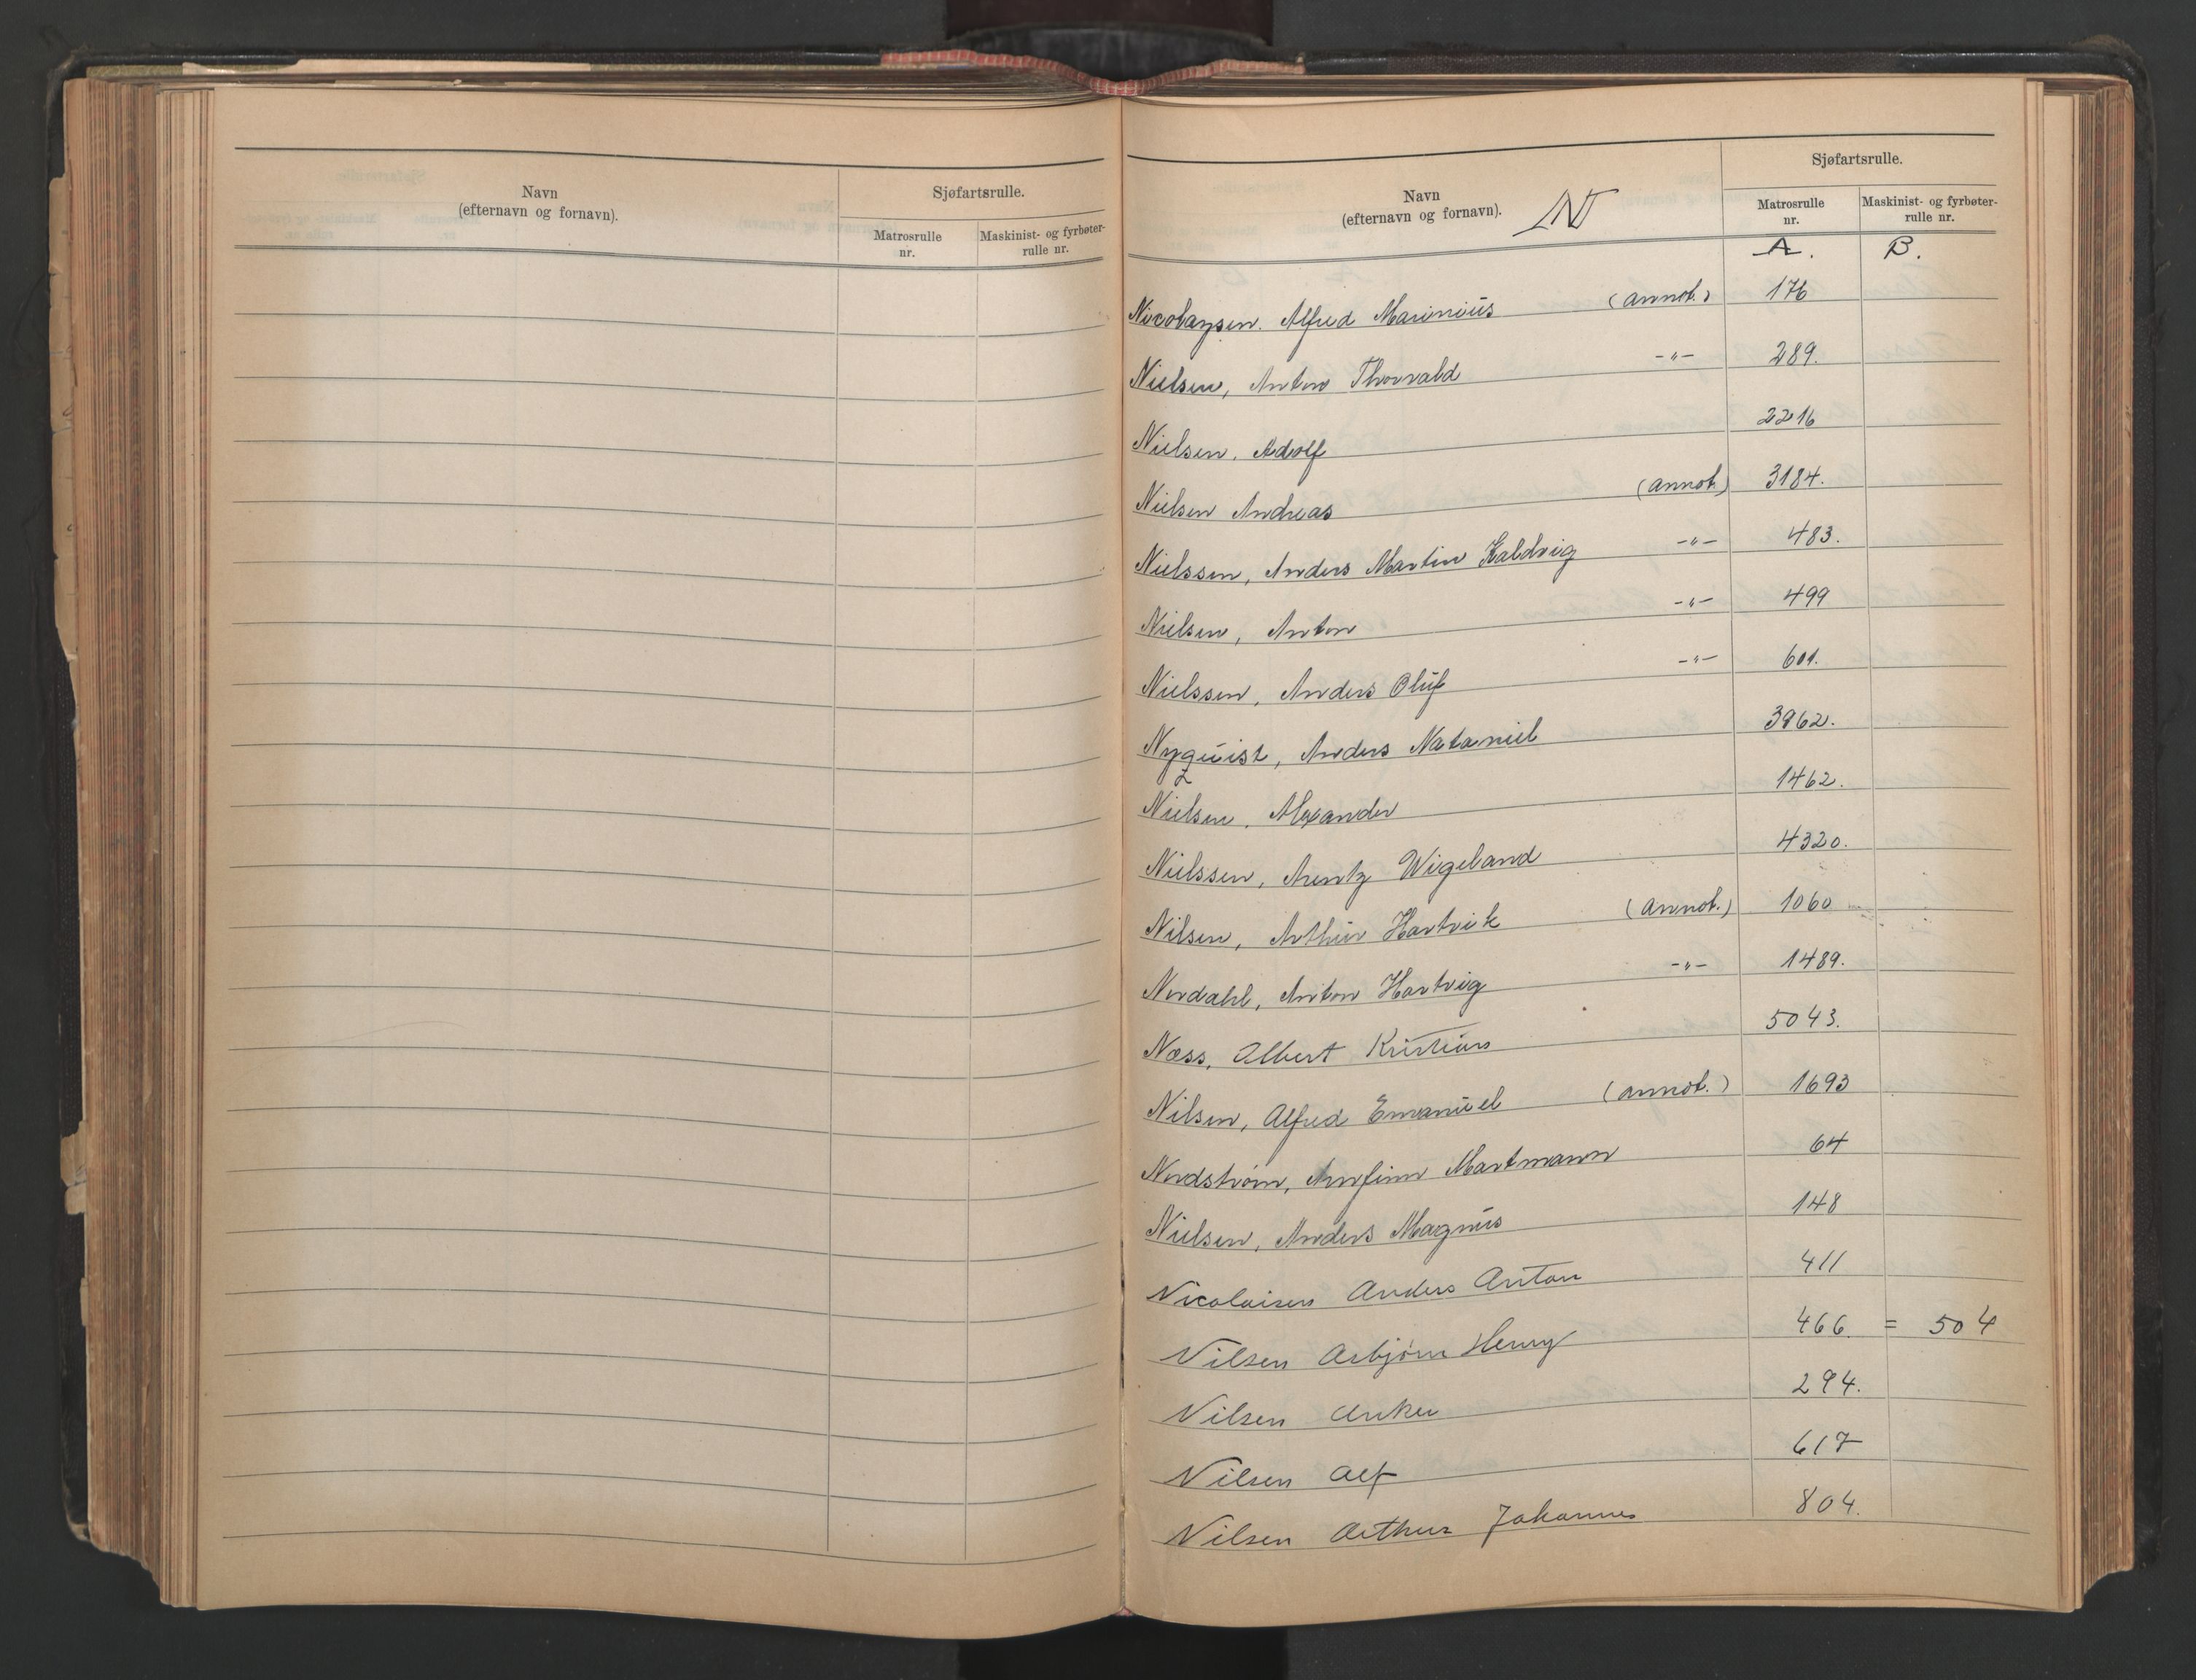 Navn
(efternavn og fornavn).
Sjøfartsrulle.
Matrosrulle
nr.
Maskinist- og fyrbøter-
rulle nr.
Navn
(efternavn og fornavn).
N
Sjøfartsrulle.
Matrosrulle
nr.
Maskinist- og fyrbøter-
rulle nr.
A. B.
Nicolaysen. Alfred Marinius (annot.) 176
Nielsen, Anton Thorvald -"- 289.
Nielsen, Adolf 2216
Nielsen Andreas (annot) 3184.
Nielssen, Anders Martin Kaldvig -"- 483.
Nielsen, Anton -"- 499
Nielssen, Anders Oluf -"- 601.
Nyquist, Anders Nataniel 3962.
Nielsen, Alexander 1462.
Nielssen, Arentz Wigeland 4320.
Nilsen, Arthur Hartvik (annot.) 1060
Nordahl, Anton Hartvig -"- 1489.
Næss, Albert Kristian 5043.
Nilsen, Alfred Emanuel (annot.) 1693
Nordstrøm, Arnfinn Martmann 64
Nielsen, Anders Magnus 148
Nicolaisen Anders Anton 411
Nilsen Asbjørn Henry 466. = 504
Nilsen Anker 294.
Nilsen Alf 617
Nilsen Arthur Johannes 804.